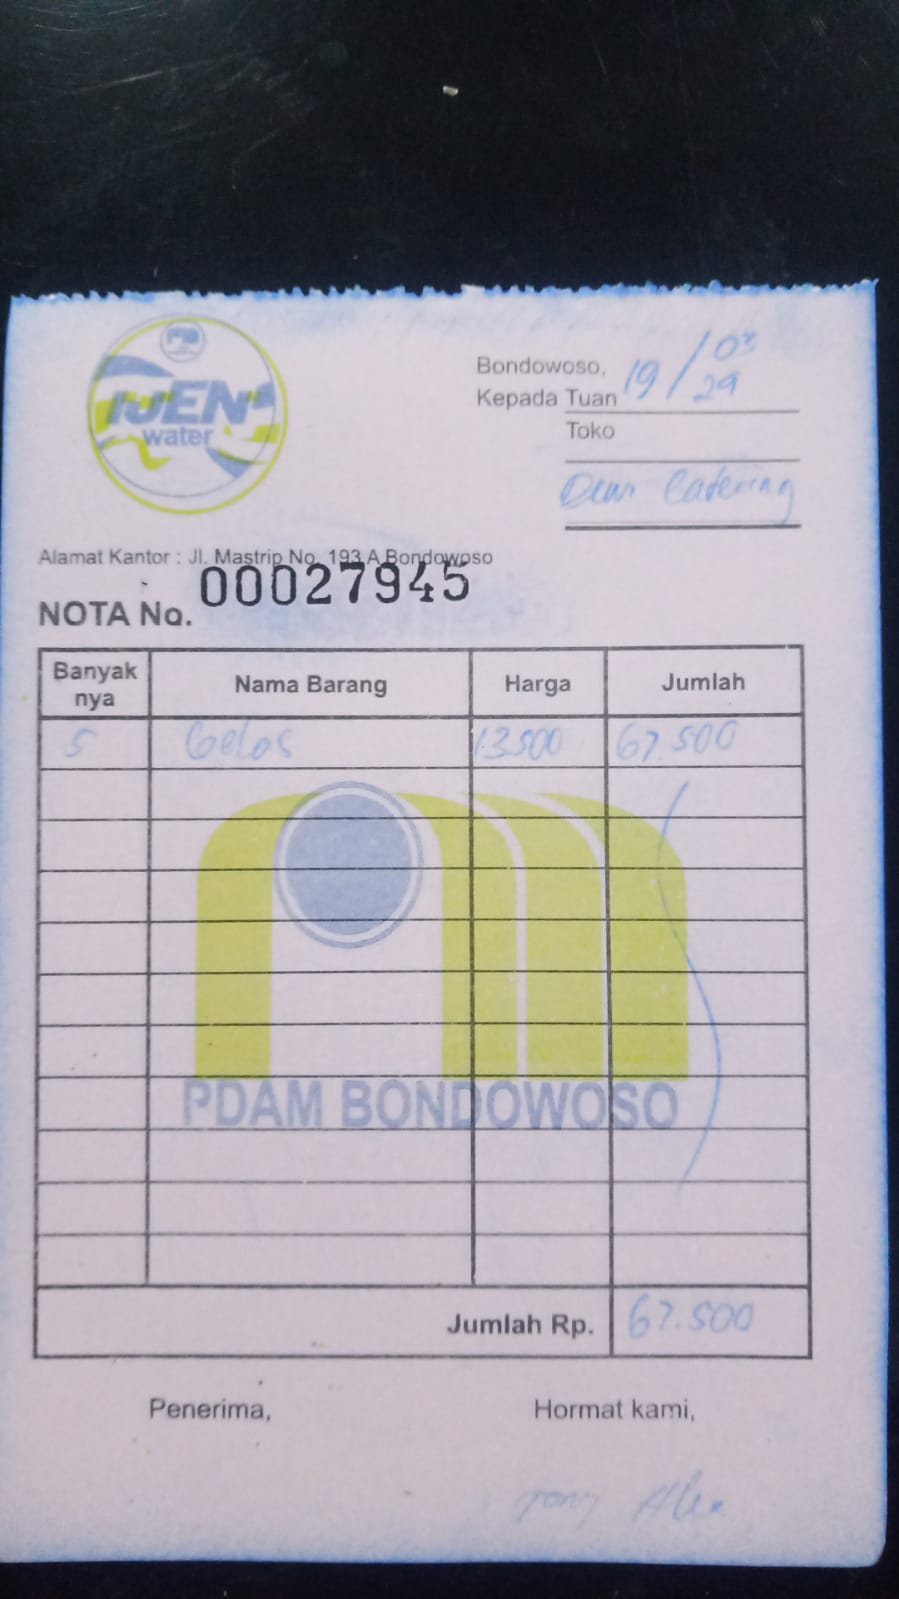 IJEN
water
Bondowoso, 19/03
Kepada Tuan 29
Toko
Dewi Catering
Alamat Kantor : Jl. Mastrip No. 193 A Bondowoso
NOTA No. 00027945
Banyak nya Nama Barang Harga Jumlah
5 Gelas 13.500 67.500
PDAM BONDOWOSO
Jumlah Rp. 67.500
Penerima, Hormat kami,